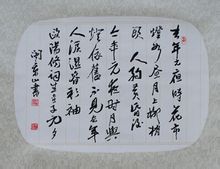 去年元夜时花市
灯如昼月上柳梢
头人约黄昏后
今年元夜时月与
灯依旧不见去年
人泪湿春衫袖
欧阳修词生查子元夕